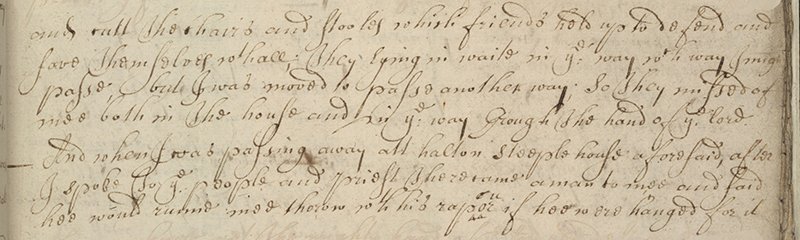 and cutt the chairs and stooles which friends held up to defend and
save themselves wthall: they lying in waite in ye way wch way I might
passe, but I was moved to passe another way: so they missed of
mee both in the house and in ye way through the hand of ye lord.
And when I was passing away att halton steeplehouse aforesaid, after
I spoke to ye people and priest there came a man to mee and said
hee would runne mee thorow wth his rapor if hee were hanged for it